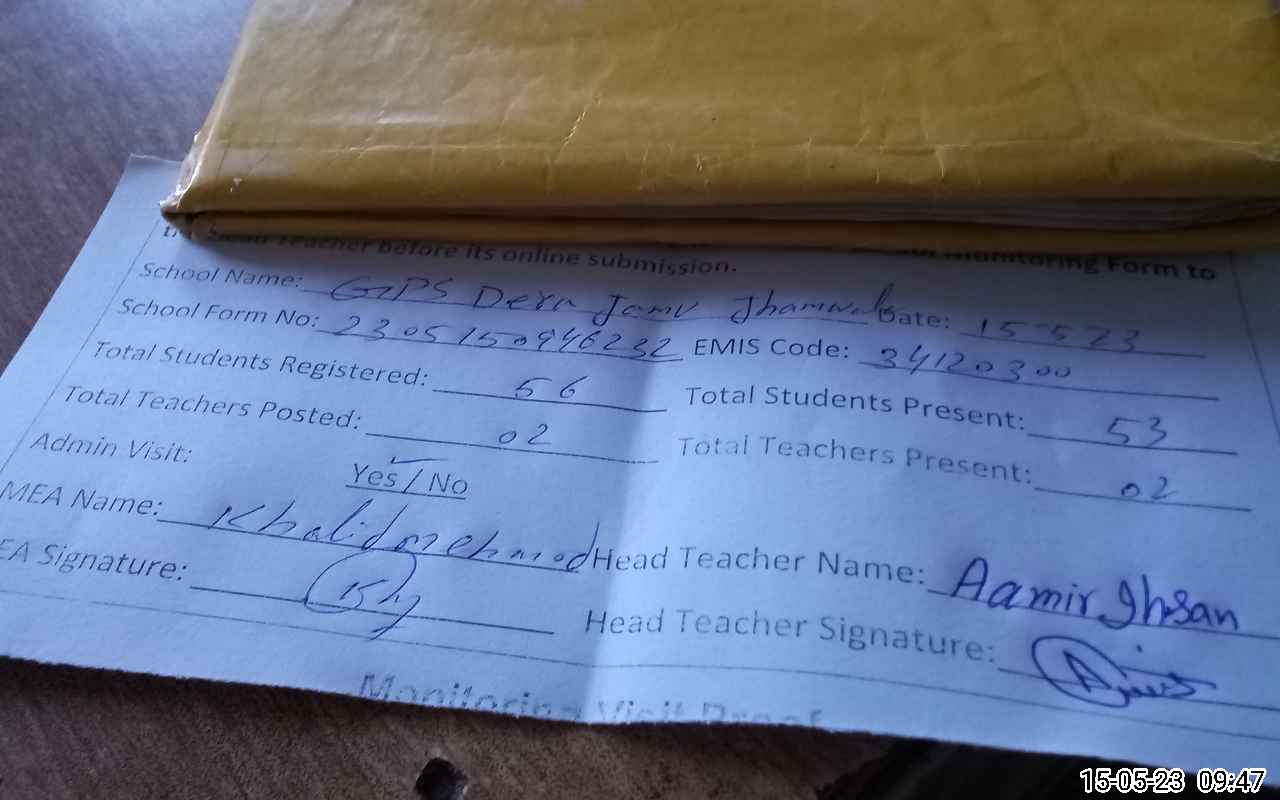 Teacher before its online submission. Monitoring Form to
School Name: GPS Dera Jamu Jhamwal Date: 15-5-23
School Form No: 2305150946232 EMIS Code: 34120300
Total Students Registered: 56 Total Students Present: 53
Total Teachers Posted: 02 Total Teachers Present: 02
Admin Visit: Yes / No
MEA Name: Khalid mehmod Head Teacher Name: Aamir Ihsan
EA Signature: Head Teacher Signature:
Monitoring Visit Proof
15-05-23 09:47